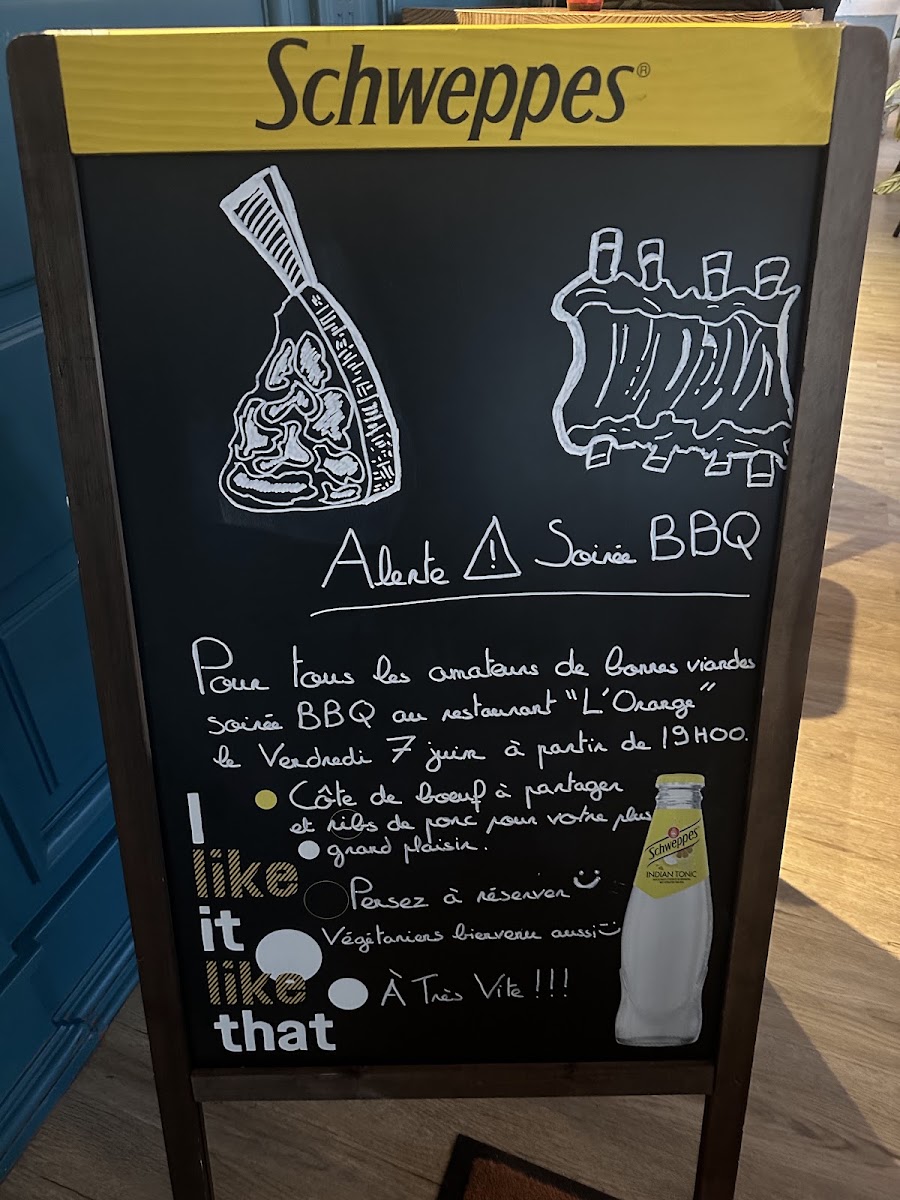 Schweppes®
Alerte ! Soirée BBQ
Pour tous les amateurs de bonnes viandes
soirée BBQ au restaurant "L'Orange"
le Vendredi 7 juin à partir de 19H00.
Côte de boeuf à partager
et ribs de porc pour votre plus
grand plaisir.
Pensez à réserver
Végétariens bienvenu aussi
À Très Vite !!!
I
like
it
like
that
Schweppes
INDIAN TONIC